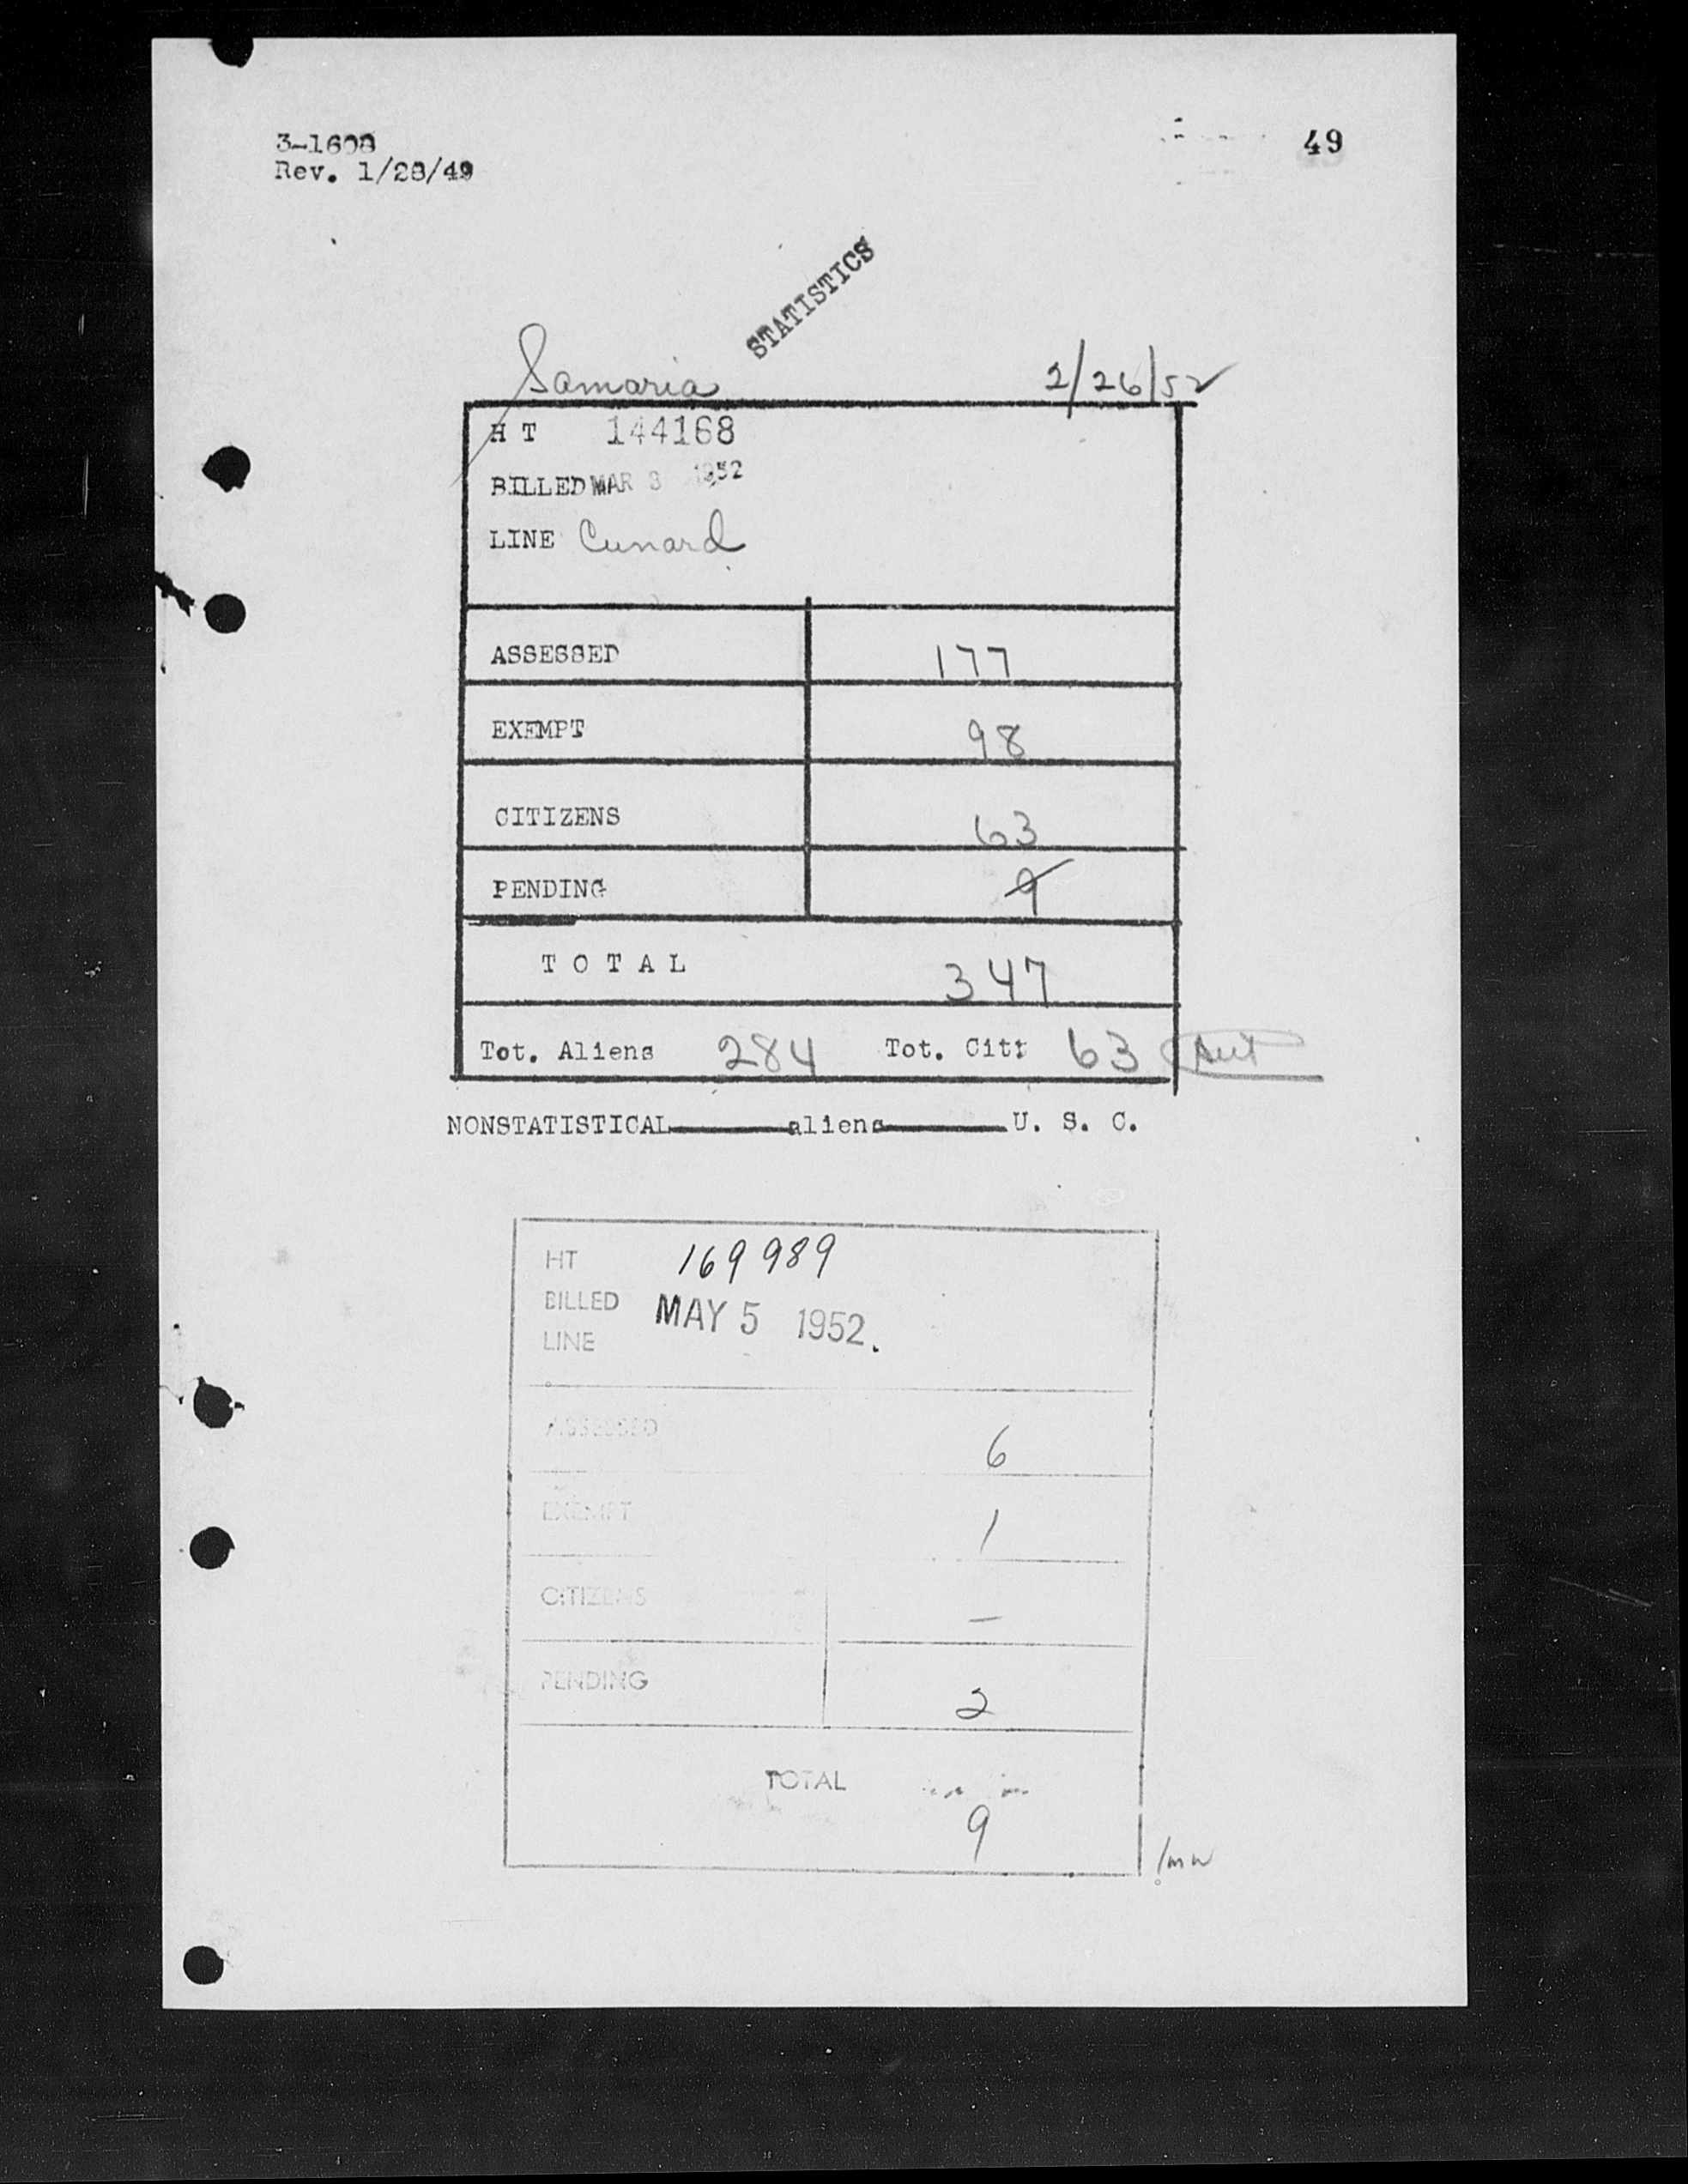 3-1608
Rev. 1/28/49
49
STATISTICS
Samaria 2/26/52
H T 144168
BILLED MAR 3 1952
LINE Cunard
ASSESSED 177
EXEMPT 98
CITIZENS 63
PENDING 9
T O T A L 347
Tot. Aliens 284 Tot. Citz 63
NONSTATISTICAL aliens U. S. C.
HT 169989
BILLED MAY 5 1952.
LINE
ASSESSED 6
EXEMPT 1
CITIZENS –
PENDING 2
TOTAL
9